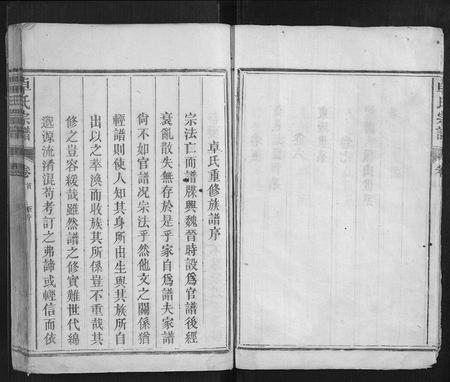 卓氏重修族譜序
宗法亡而譜牒興魏晉時設爲官譜後經
衰亂散失無存於是乎家自爲譜夫家譜
尙不如官譜况宗法乎然他文之關係猶
輕譜則使人知其身所由生與其族所自
出以之萃渙而收族其所係豈不重哉其
修之豈容緩哉雖然譜之修實難世代緜
邈源流淆混苟考訂之弗諦或輕信而依
卓氏宗譜
卷首
卓氏宗譜
卷